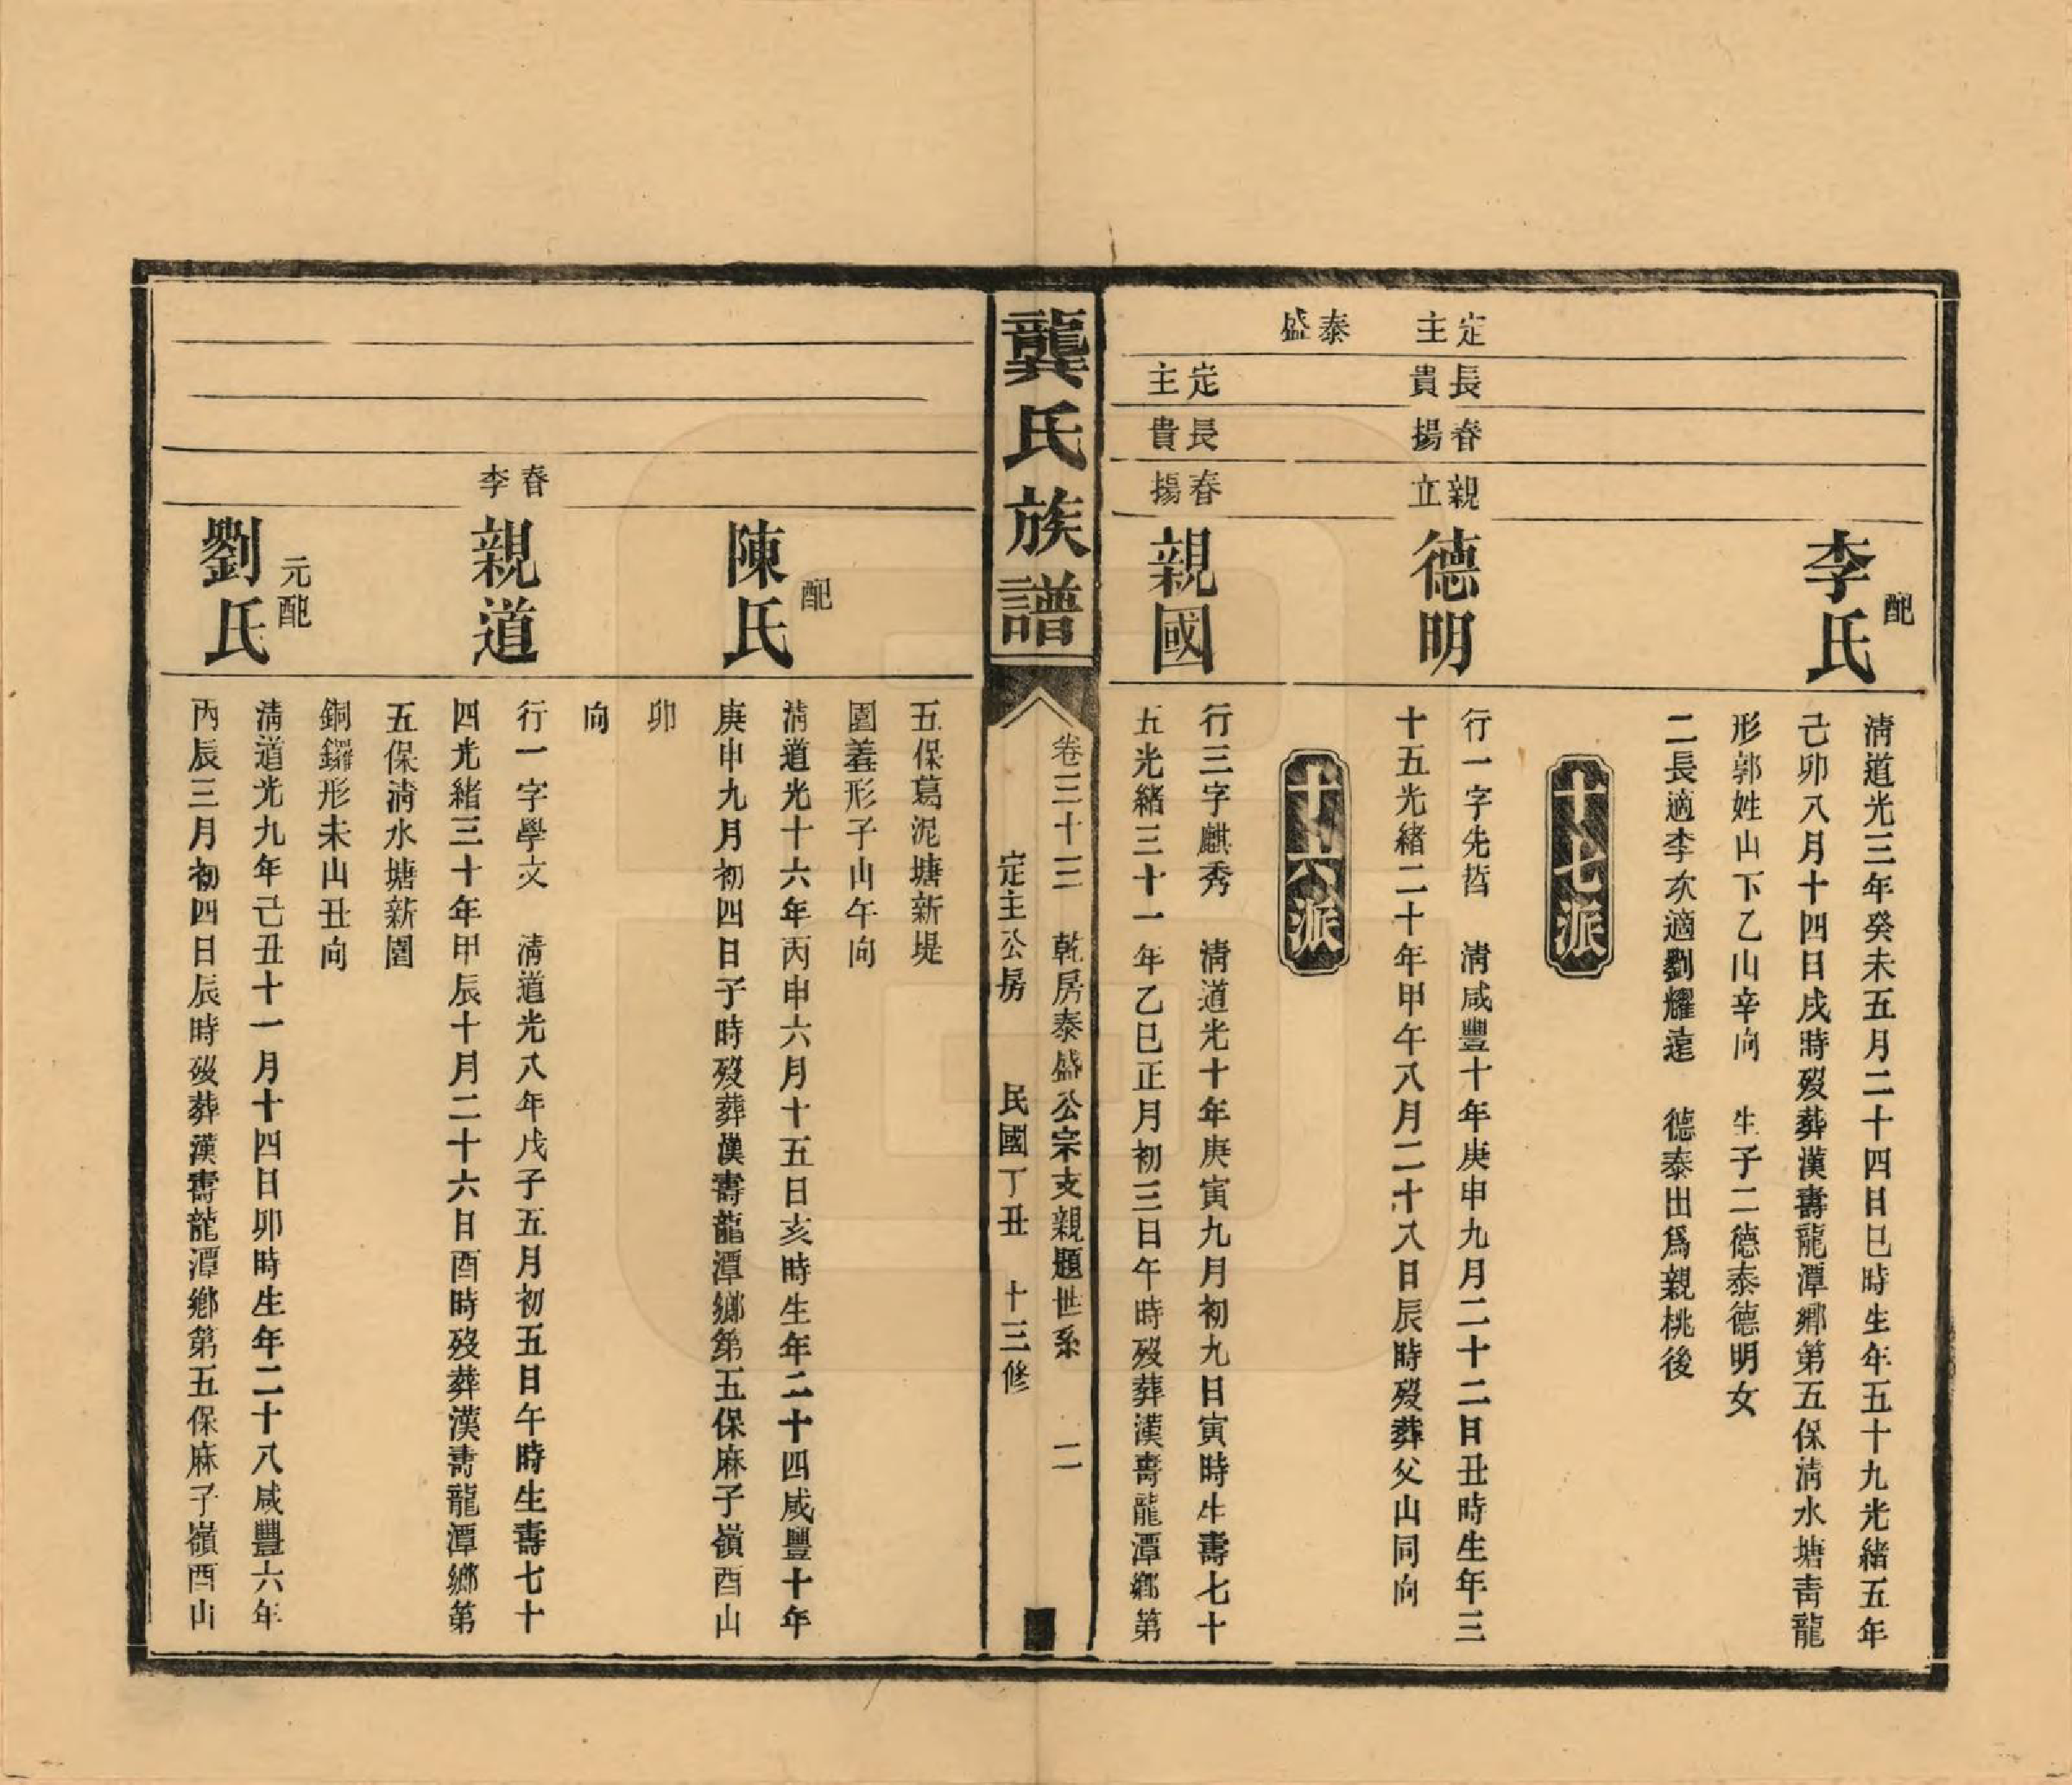 配
李氏
清道光三年癸未五月二十四日巳時生年五十九光緒五年
己卯八月十四日戌時歿葬漢壽龍潭鄉第五保清水塘靑龍
形郭姓山下乙山辛向　生子二德泰德明女
二長適李次適劉耀遠　德泰出爲親桃後
十七派
定主
長貴
春揚
親立
德明
行一字先哲　清咸豐十年庚申九月二十二日丑時生年三
十五光緒二十年甲午八月二十八日辰時歿葬父山同向
泰盛
十六派
定主
長貴
春揚
親國
行三字麒秀　清道光十年庚寅九月初九日寅時生壽七十
五光緒三十一年乙巳正月初三日午時歿葬漢壽龍潭鄉第
龔氏族譜
卷三十三　乾房泰盛公宗支親題世系　二
定主公房　民國丁丑　十三修
五保葛泥塘新堤
園羞形子山午向
配
陳氏
清道光十六年丙申六月十五日亥時生年二十四咸豐十年
庚申九月初四日子時歿葬漢壽龍潭鄉第五保麻子嶺酉山
卯
向
春李
親道
行一字學文　清道光八年戊子五月初五日午時生壽七十
四光緒三十年甲辰十月二十六日酉時歿葬漢壽龍潭鄉第
五保清水塘新園
銅鑼形未山丑向
元配
劉氏
清道光九年己丑十一月十四日卯時生年二十八咸豐六年
丙辰三月初四日辰時歿葬漢壽龍潭鄉第五保麻子嶺酉山